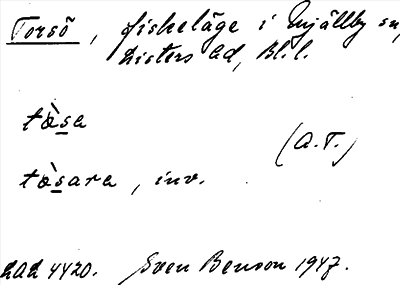 Torsö, fiskeläge i Mjällby sn,
Listers hd, Bl.l.
tò̀sa
(A.T.)
tò̀sara, inv.
LAL 4420. Sven Benson 1947.